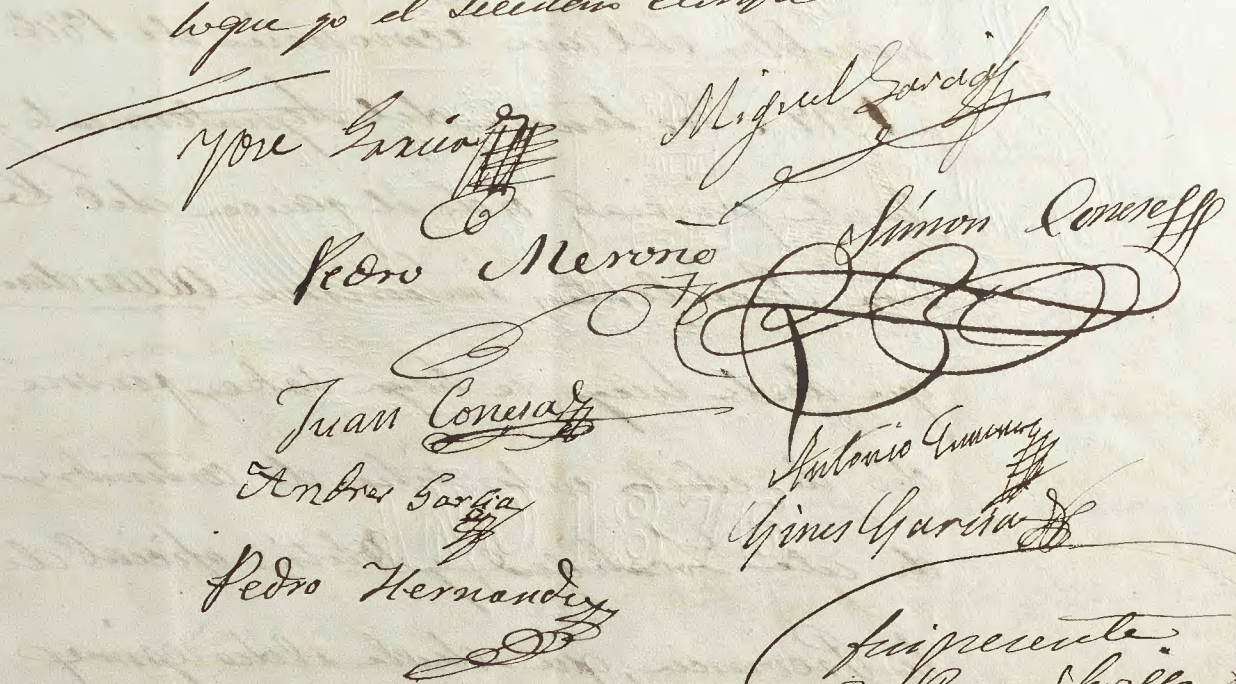 lo que yo el Secretario certifico
Jose Garcia
Miguel Garcia
Pedro Meroño
Simon Conesa
Juan Conesa
Antonio
Andres Garcia
Gines Garcia
Pedro Hernandez
fui presente